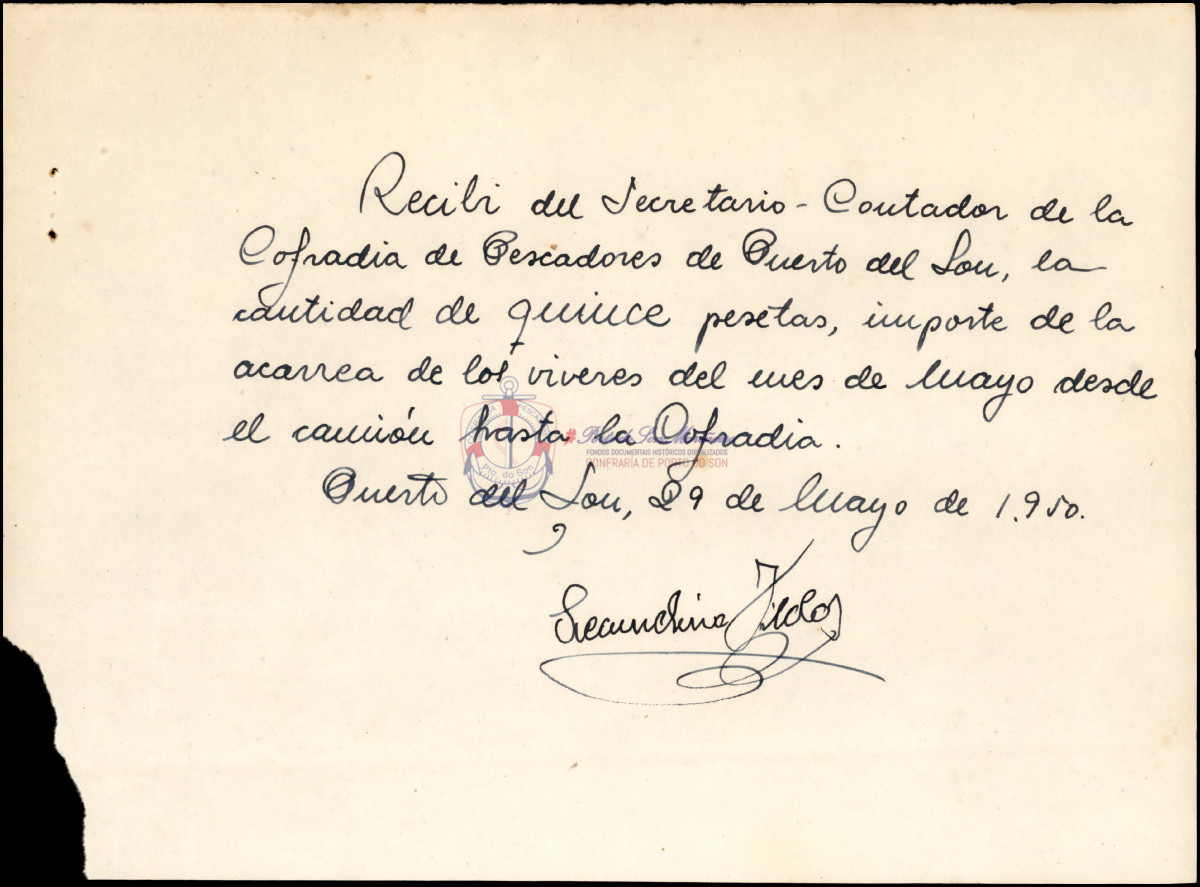 Recibi del Secretario-Contador de la
Cofradia de Pescadores de Puerto del Son, la
cantidad de quince pesetas, importe de la
acarrea de los viveres del mes de Mayo desde
el camión hasta la Cofradia.
FONDOS DOCUMENTAIS HISTÓRICOS DIXITALIZADOS
CONFRARÍA DE PORTO DO SON
Pto. do Son
Puerto del Son, 29 de Mayo de 1.950.
Secundina